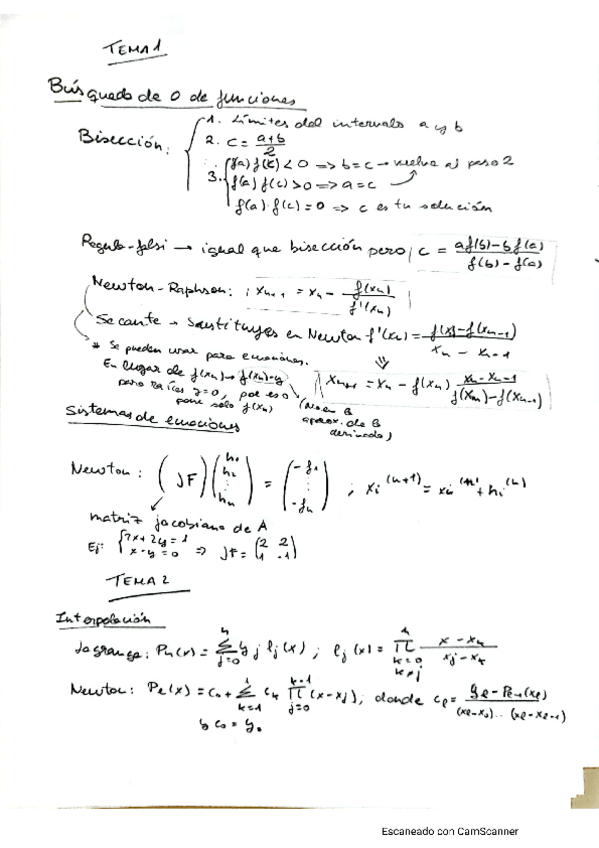 TEMA 1
Búsqueda de 0 de funciones
Bisección:
1. Límites del intervalo a y b
2. c = (a+b)/2
3. f(a) f(c) < 0 => b = c → vuelve al paso 2
f(a) f(c) > 0 => a = c
f(a) · f(c) = 0 => c es tu solución
Regula-falsi → igual que bisección pero / c = (a f(b) - b f(a)) / (f(b) - f(a))
Newton-Raphson: ; x_{n+1} = x_n - f(x_n)/f'(x_n)
Secante → Sustituyes en Newton f'(x_n) = (f(x) - f(x_{n-1})) / (x_n - x_{n-1})
* Se pueden usar para ecuaciones.
En lugar de f(x_n) → f(x_n) - y
para raíces y=0, por eso
pone solo f(x_n)
x_{n+1} = x_n - f(x_n) (x_n - x_{n-1}) / (f(x_n) - f(x_{n-1}))
(No en B
aprox. de B
derivada)
Sistemas de ecuaciones
Newton: (JF) (h_0 h_2 ⋮ h_n) = (-f_1 ⋮ -f_n) ; x_i^{(n+1)} = x_i^{(n)} + h_i^{(n)}
matriz jacobiana de A
Ej: { 7x + 2y = 1
x - y = 0 => JF = (2 2
1 -1)
TEMA 2
Interpolación
Lagrange: P_n(x) = Σ_{j=0}^{n} y_j l_j(x) ; l_j(x) = Π_{k=0, k≠j}^{n} (x - x_k)/(x_j - x_k)
Newton: P_l(x) = c_0 + Σ_{k=1}^{l} c_k Π_{j=0}^{k-1} (x - x_j), donde c_l = (y_l - P_{l-1}(x_l)) / ((x_l - x_0)...(x_l - x_{l-1}))
y c_0 = y_0
Escaneado con CamScanner